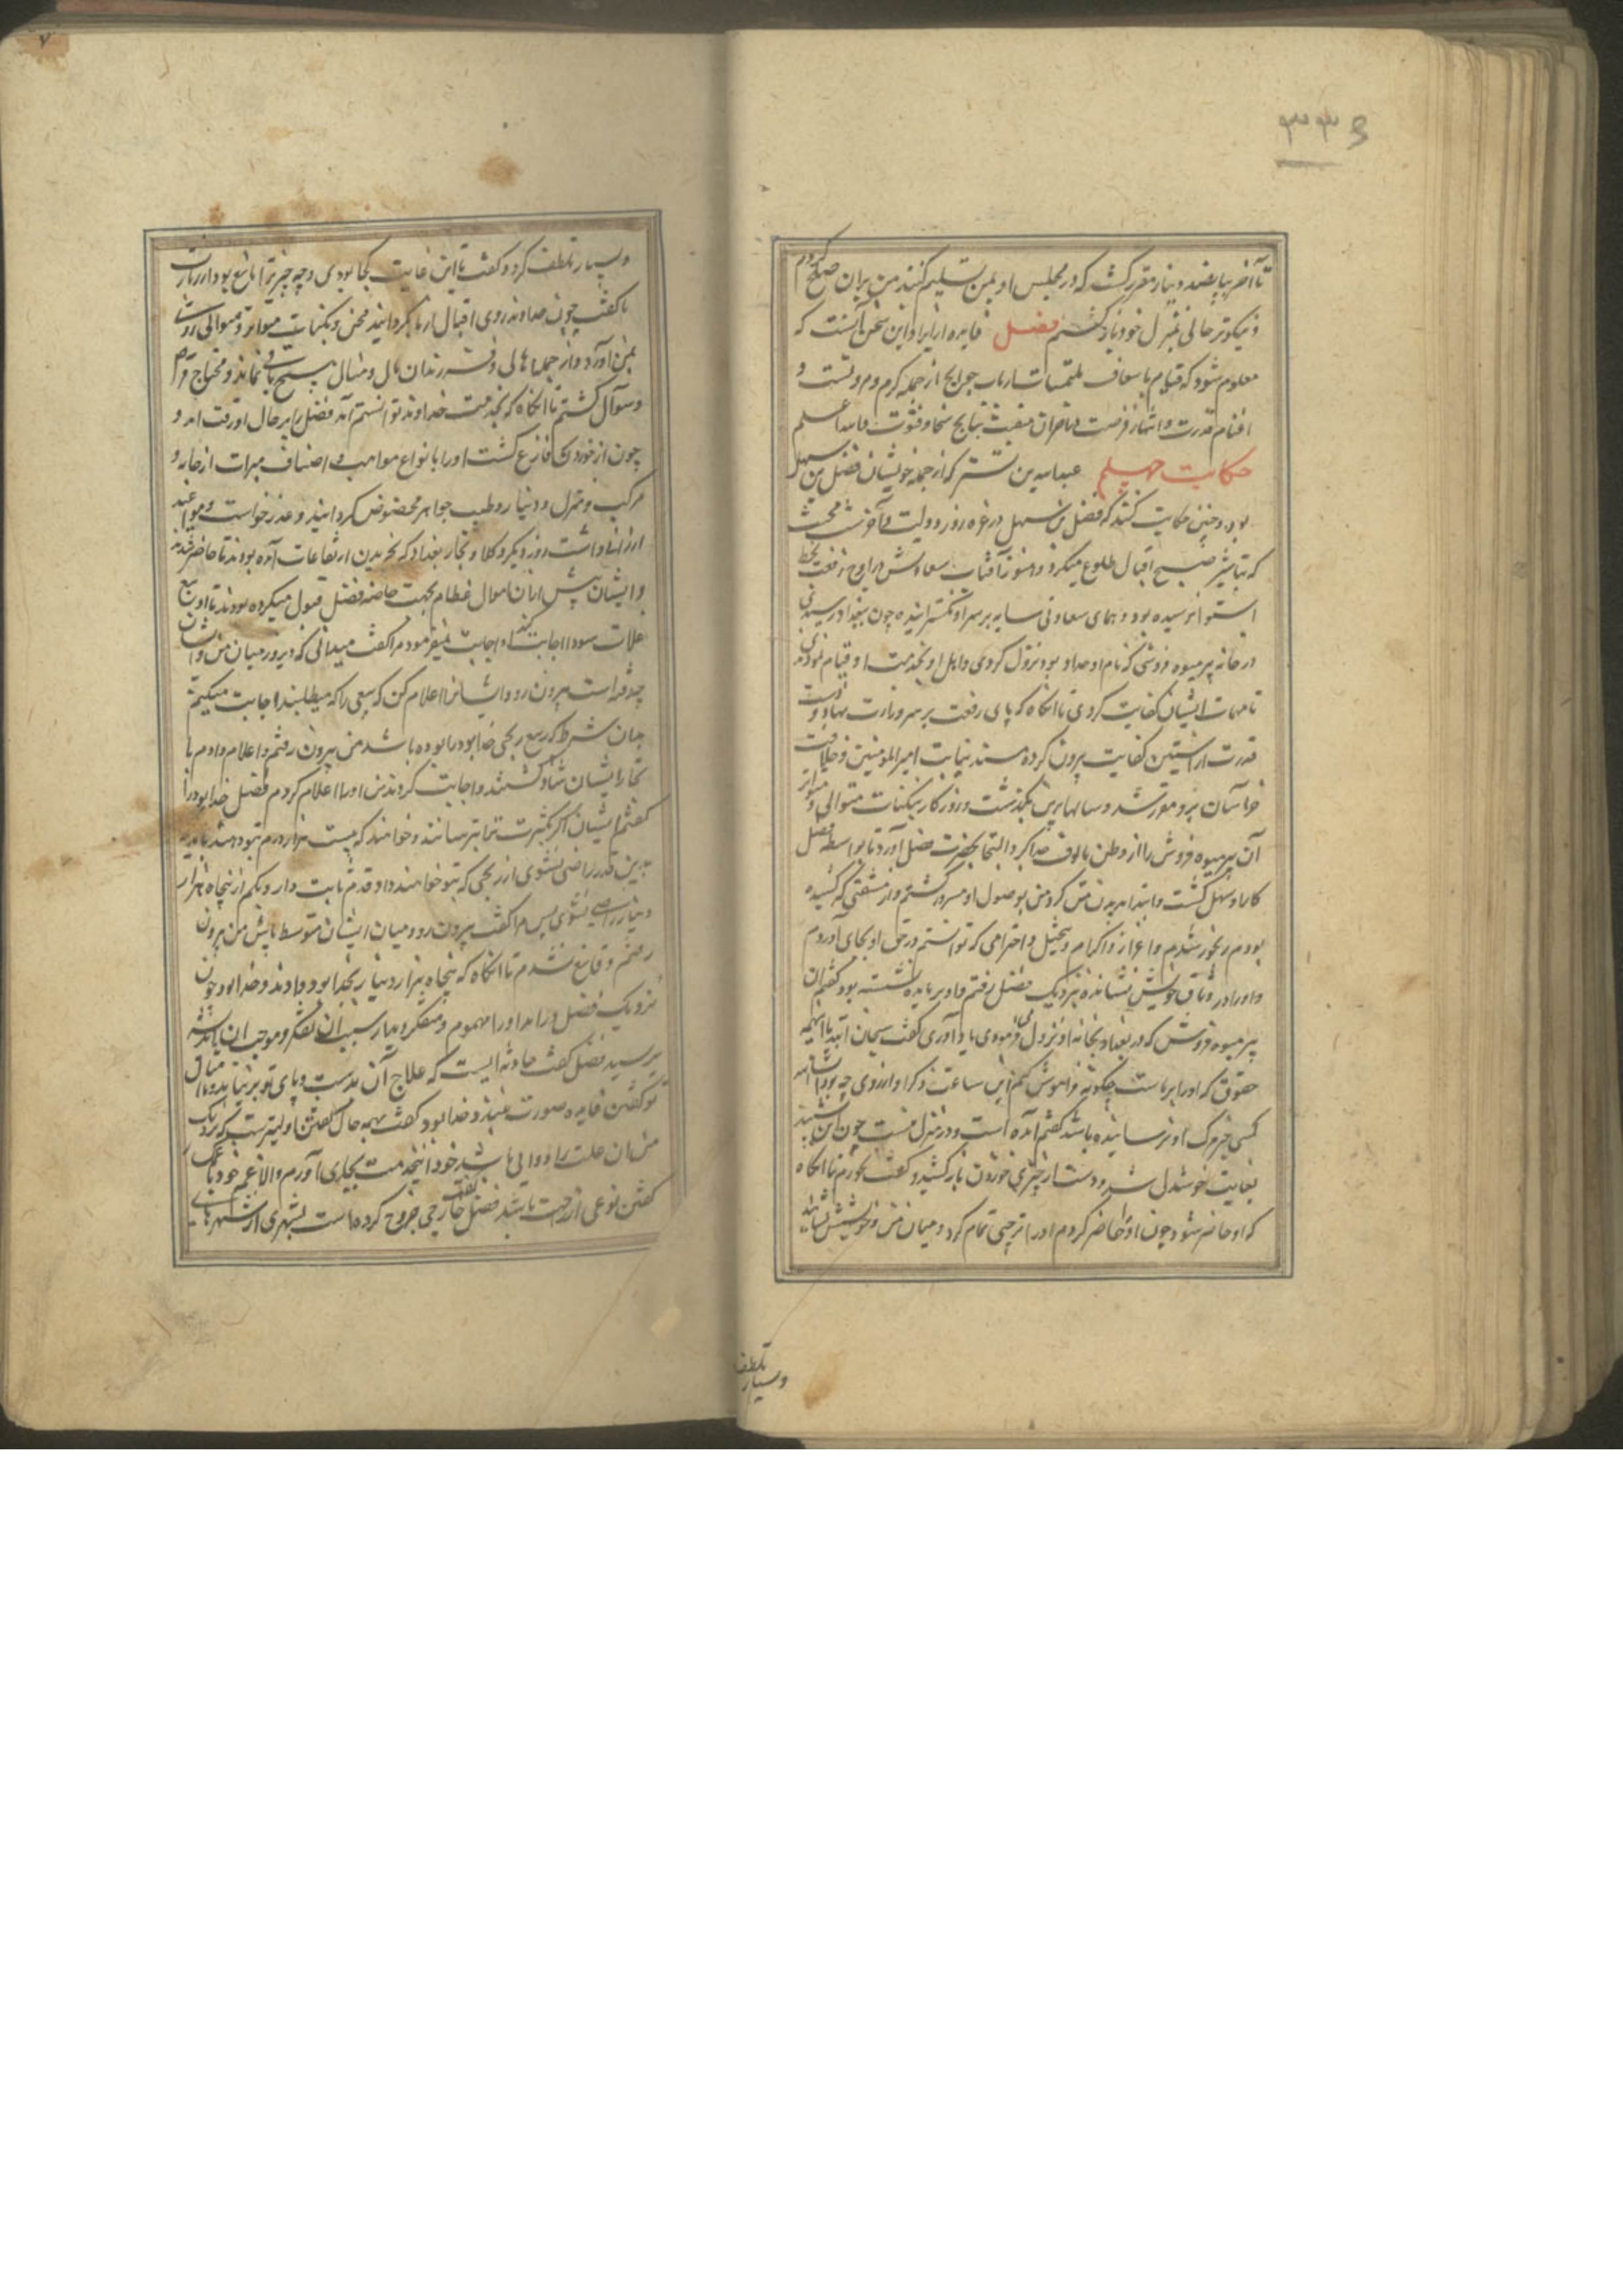 ۳۳۶
تا آخر بپانصد دینار مقرر گشت که در مجلس او بمن تسلیم کنند من بران صلح کردم
و نیکوتر حالی بمنزل خود باز گشتم فصل فایده از ایراد این سخن آنست که
معلوم شود که قیام باسعاف ملتمسات ارباب حوایج از جمله کرم و مروتست و
اغتنام قدرت و انتهاز فرصت نتایج سخا و فتوت والله اعلم
حکایت چهلم عبدالله بن تستر که از جمله خویشان فضل بن سهل
بود چنین حکایت کند که فضل بن سهل در غره روز دولت و آخر شب محنت
که تباشیر صبح اقبال طلوع میکرد و هنوز آفتاب سعادتش در اوج رفعت بخط
استوا نرسیده بود و همای سعادتی سایه بر سر او نگسترانیده چون ببغداد رسیدی
در خانه پیر میوه فروشی که نام او خدابود بود نزول کردی و اهل او بخدمت او قیام نمودندی
تا مهمات ایشان کفایت کردی تا آنگاه که پای رفعت بر سر وزارت نهاد و دست
قدرت از آستین کفایت بیرون کرد و مسند نیابت امیرالمؤمنین و خلافت
خراسان برو مقرر شد و سالها برین بگذشت و روزگار بنکبات متوالی و متواتر
آن پیر میوه فروش را از وطن مالوف جدا کرد و التجا بحضرت فضل آورد تا بواسطه فضل
کار او سهل گشت و ابتدا بدیدن من کرد من بوصول او مسرور گشتم و از مشقتی که کشیده
بودم رنجور شدم و اعزاز و اکرام و تبجیل و احترامی که توانستم در حق او بجای آوردم
و او را در وثاق خویش نشانده نزدیک فضل رفتم و او بر مایده نشسته بود گفتم آن
پیر میوه فروش که در بغداد بخانه او نزول می فرمودی یاد آوری گفت سبحان الله با اینهمه
حقوق که او را بر ماست چگونه فراموش کنم این ساعت ذکر او از روی چه بود
کسی خبر مرگ او رسانیده باشد گفتم آمده است و در منزل منست چون این بشنید
بغایت خوشدل شد و دست از چیزی خوردن باز کشید و گفت نخورم تا آنگاه
که او حاضر شود چون او را حاضر کردم او را ترحیبی تمام کرد و میان من و خویش بنشاند
و بسیار تلطف
۷
و بسیار تلطف کرد و گفت تا این غایت کجا بودی و چه چیز ترا مانع بود از زیارت
ما گفت چون خداوند روی اقبال از ما بگردانید محن و نکبات متواتر و متوالی روی
بمن آورد و از جمله اهالی و فرزندان مال و منال هیچ باقی نماند و محتاج
و سوآل گشتم تا آنگاه که بخدمت خداوند توانستم آمد فضل را بر حال او رقت آمد و
چون از خوردن فارغ گشت او را بانواع مواهب و اصناف مبرات از جامه و
مرکب و منزل و دینار و طیب و جواهر مخصوص گردانید و عذر خواست و مواعید
ارزانی داشت روز دیگر وکلا و تجار بغداد که بخریدن ارتفاعات آمده بودند تا حاضر شدند
و ایشان پیش ازان اموال عظام بجهت خاصه فضل قبول میکرده بودند تا او بیع
غلات سواد اجابت کند او اجابت نمیفرمود مرا گفت میدانی که دیروز میان من و ایشان
چه رفته است بیرون رو و ایشانرا اعلام کن که بیعی را که میطلبند اجابت میکنیم
بدان شرط که ربع ربحی خدابود را بوده باشد من بیرون رفتم و اعلام دادم
تجار ایشان شاد گشتند و اجابت کردند من او را اعلام کردم فضل خدابود را
گفت ایشان اگر بکثرت ترا بترسانند و خواهند که بیست هزار درم بتو دهند باید که
بدین قدر راضی نشوی از ربحی که بتو خواهند داد و قدم ثابت دار و بکم از پنجاه هزار
دینار راضی نشوی پس مرا گفت بیرون رو و میان ایشان متوسط باش من بیرون
رفتم و قانع نشدم تا آنگاه که پنجاه هزار دینار بخدابود دادند و خدابود چون
نزدیک فضل درآمد او را مهموم و متفکر دید از سبب آن تفکر و موجب آن اندیشه
پرسید فضل گفت حادثه ایست که علاج آن بدست و پای تو برنیاید و با
تو گفتن فایده صورت نبندد خدابود گفت بهمه حال گفتن اولیترست که اگر نزدیک
من آن علت را دوایی باشد خود آن خدمت بجای آورم و الا غم خود با
گفتن نوعی از راحت باشد فضل گفت خارجی خروج کرده است بشهری از شهرهای